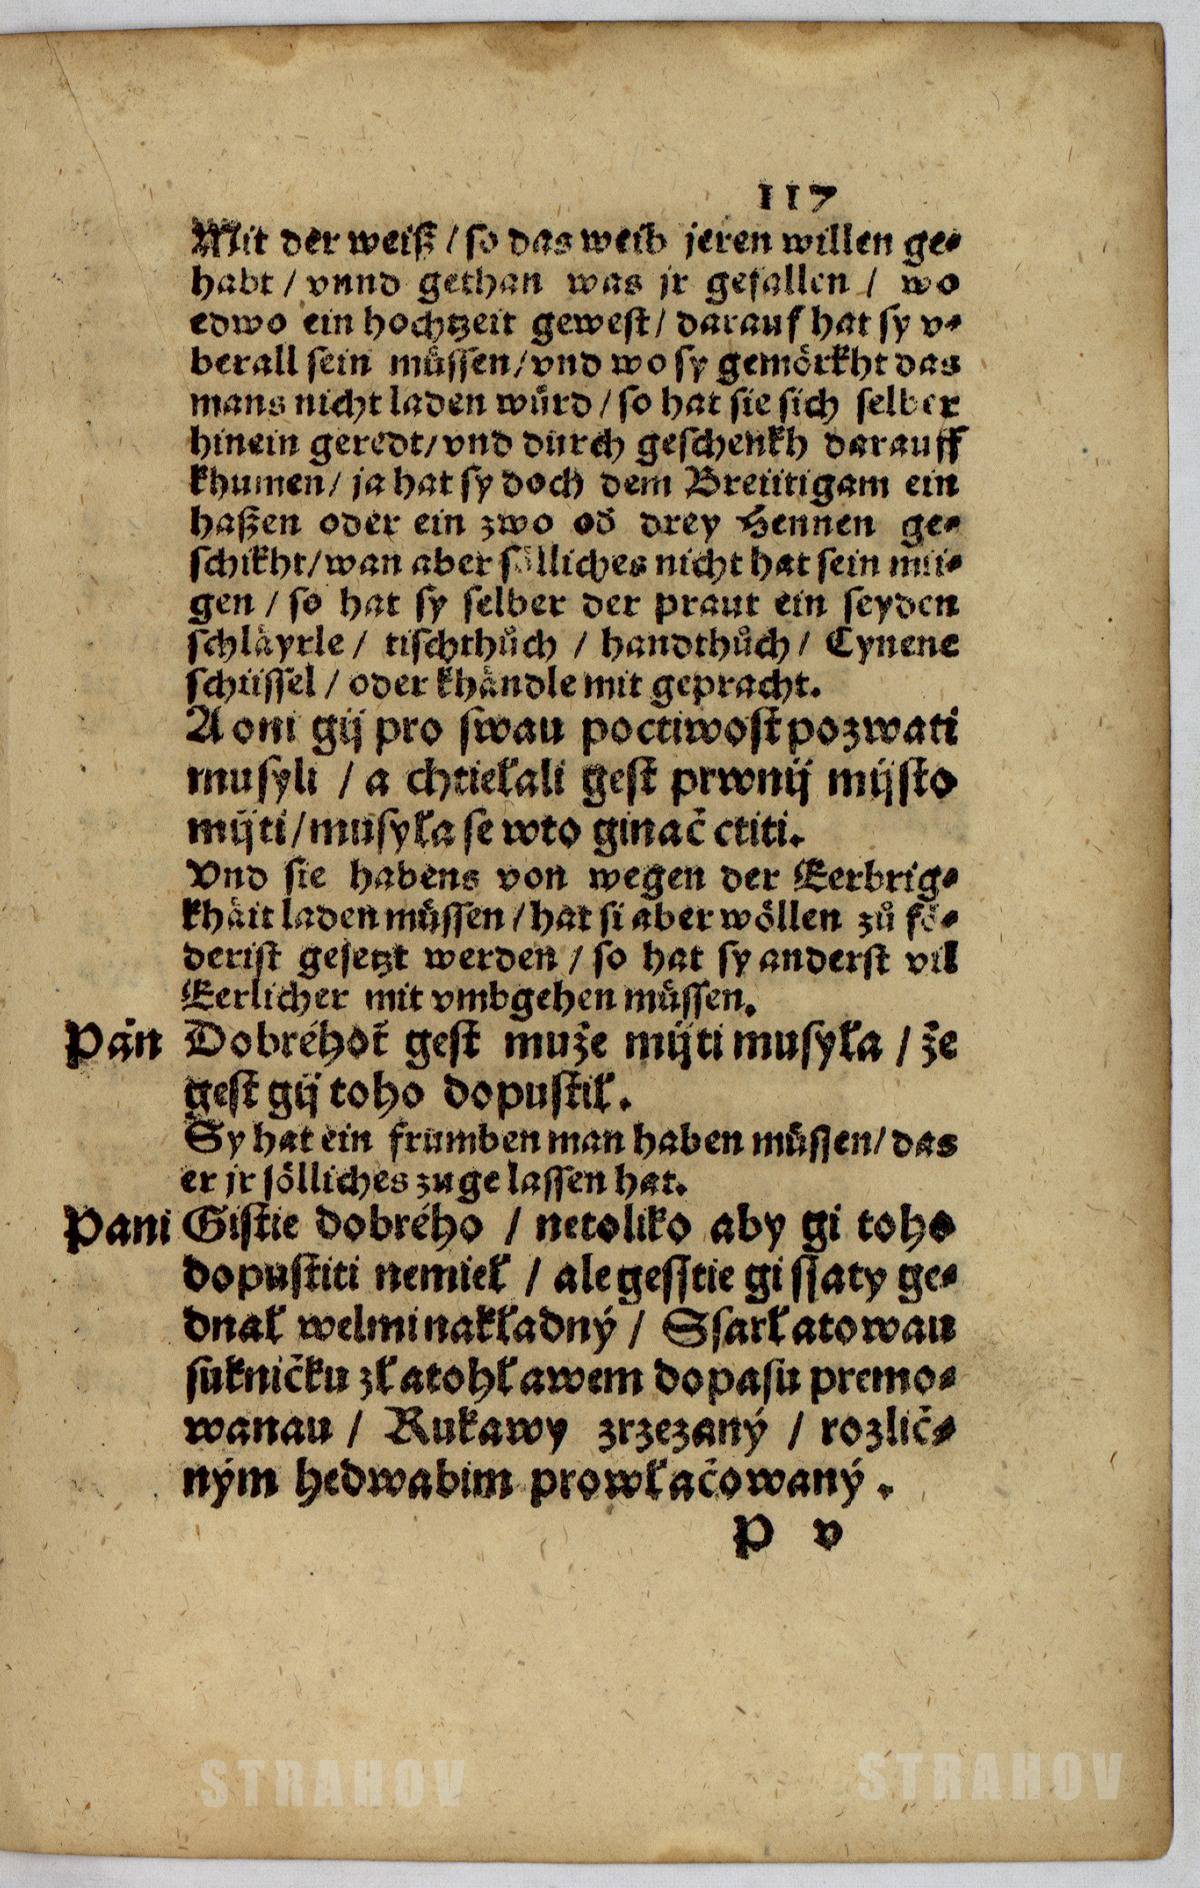 117
Mit der weiß / so das weib jeren willen ge⸗
habt / vnnd gethan was jr gefallen / wo
edwo ein hochtzeit gewest / darauf hat sy v⸗
berall sein müssen / vnd wo sy gemörkht das
mans nicht laden würd / so hat sie sich selber
hinein geredt / vnd durch geschenkh darauff
khumen / ja hat sy doch dem Breütigam ein
haßen oder ein zwo od drey Hennen ge⸗
schikht / wan aber sölliches nicht hat sein mü⸗
gen / so hat sy selber der praut ein seyden
schläyrle / tischthůch / handthůch / Cynene
schüssel / oder khändle mit gepracht.
A oni gij pro swau poctiwost pozwati
musyli / a chtiełali gest prwnij mijsto
mijti / musyła se wto ginač ctiti.
Vnd sie habens von wegen der Eerbrig⸗
khäit laden müssen / hat si aber wöllen zů fö⸗
derist gesetzt werden / so hat sy anderst vil
Eerlicher mit vmbgehen müssen.
Pán Dobréhoť gest muže mijti musyła / že
gest gij toho dopustił.
Sy hat ein frumben man haben müssen / das
er jr sölliches zuge lassen hat.
Pani Gistie dobrého / netoliko aby gi toho
dopustiti nemieł / ale gesstie gi ssaty ge⸗
dnał welmi nakładný / Ssarłatowau
sukničku złatohławem do pasu premo⸗
wanau / Rukawy zrzezaný / rozlič⸗
ným hedwabim prowłačowaný.
P v
STRAHOV STRAHOV